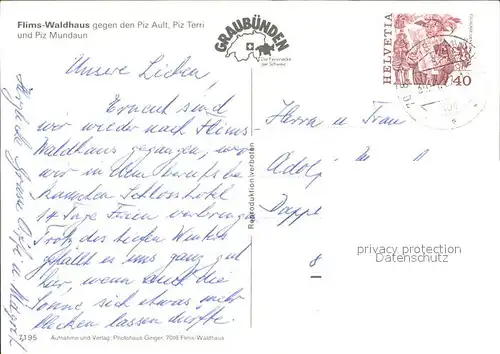 Flims-Waldhaus gegen den Piz Ault, Piz Terri
und Piz Mundaun
GRAUBÜNDEN
Die Ferienecke
der Schweiz
HELVETIA
40
Unsere Lieben,
Erneut sind
wir wieder nach Flims-
Waldhaus gegangen, wo
wir in dem bereits be
kannten Schlosshotel
14 Tage Ferien verbringen
Trotz des tiefen Winters
gefällt es uns ganz gut
hier, wenn auch die
Sonne sich etwas mehr
blicken lassen dürfte.
Herzliche Grüsse
Reproduktion verboten
Herrn u Frau
Adolf
8
privacy protection
Datenschutz
7195 Aufnahme und Verlag: Photohaus Geiger, 7018 Flims-Waldhaus